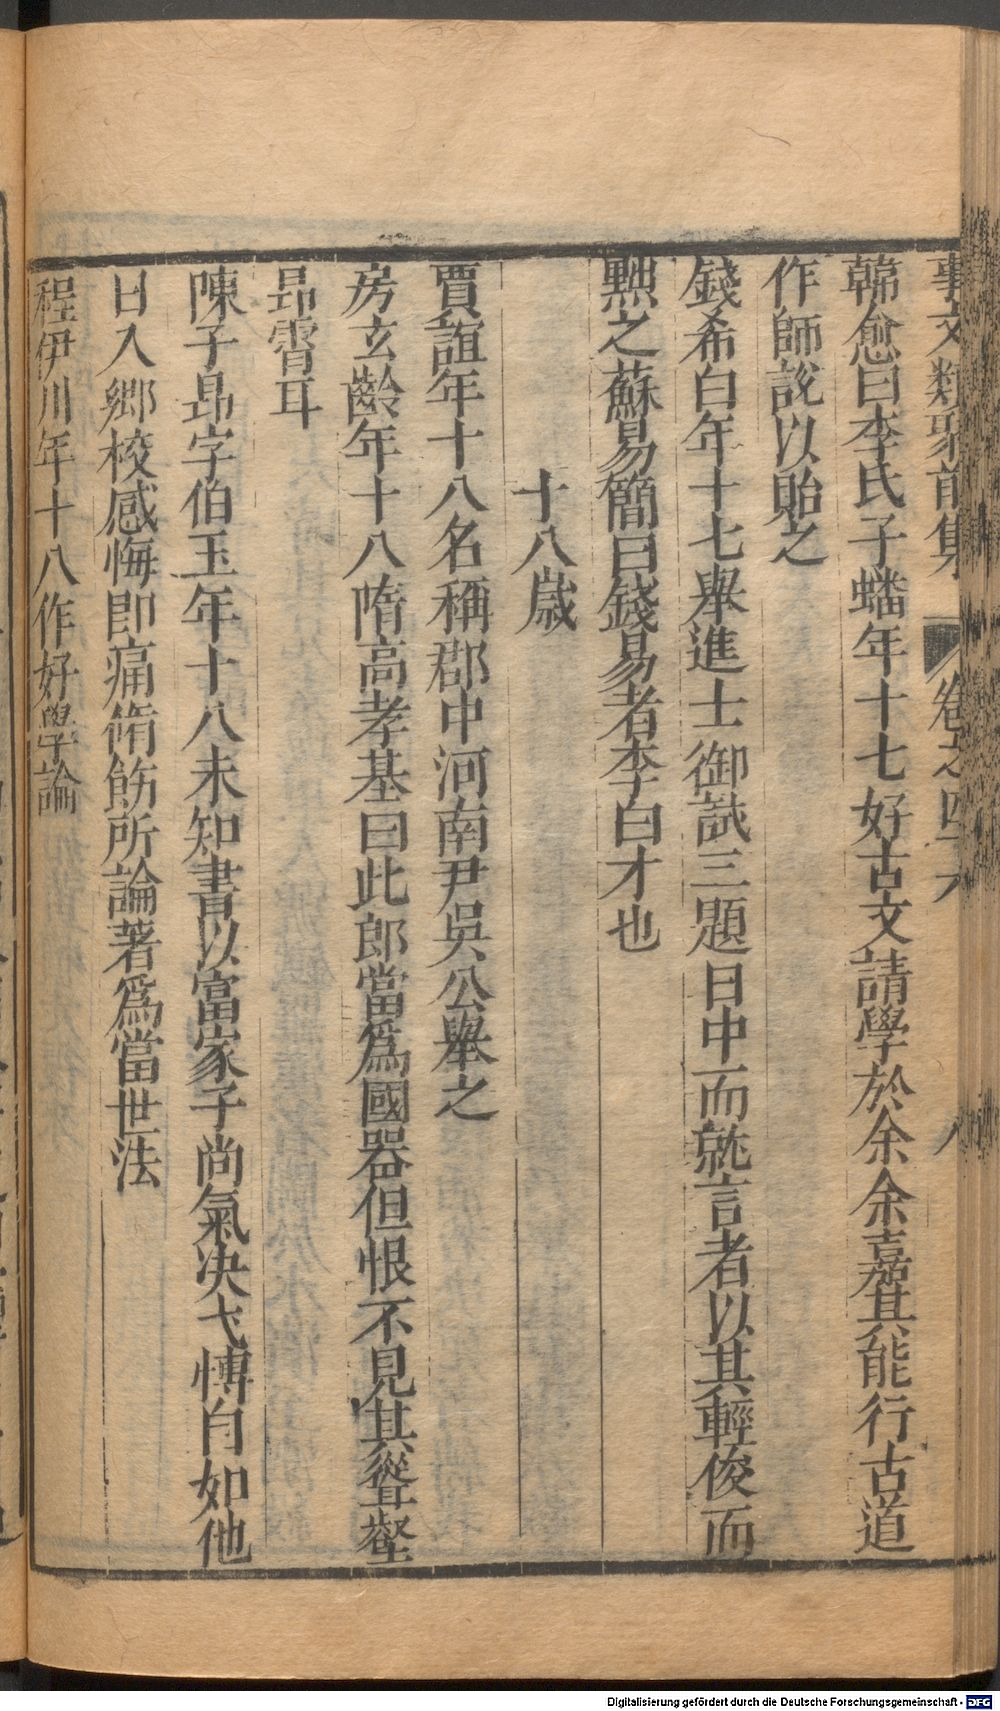 事文類聚前集 卷之四十六 八
韓愈曰李氏子蟠年十七好古文請學於余余嘉其能行古道
作師說以貽之
錢希白年十七舉進士御試三題日中而就言者以其輕俊而
黜之蘇易簡曰錢易者李白才也
十八歲
賈誼年十八名稱郡中河南尹吳公舉之
房玄齡年十八隋高孝基曰此郎當爲國器但恨不見其聳壑
昂霄耳
陳子昂字伯玉年十八未知書以富家子尚氣決弋愽自如他
日入鄉校感悔即痛脩飭所論著爲當世法
程伊川年十八作好學論
Digitalisierung gefördert durch die Deutsche Forschungsgemeinschaft - DFG